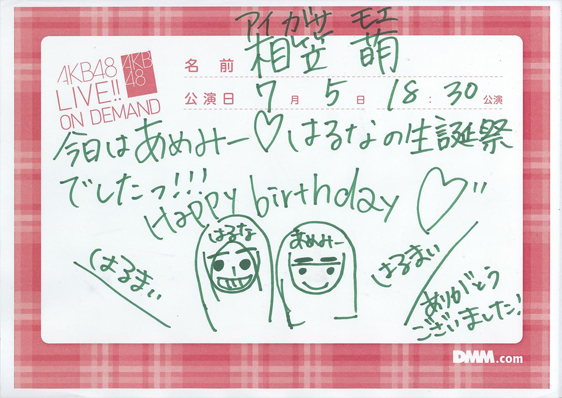 アイ ガサ モエ
AKB48
LIVE!!
ON DEMAND
AKB
48
名前 相笠 萌
公演日 7月5日 18:30公演
今日はあめみー♡はるなの生誕祭
でしたっ!!!
Happy birthday♡
はるな
まめみー
はるまい
はるまい
ありがとう
ございました!
DMM.com